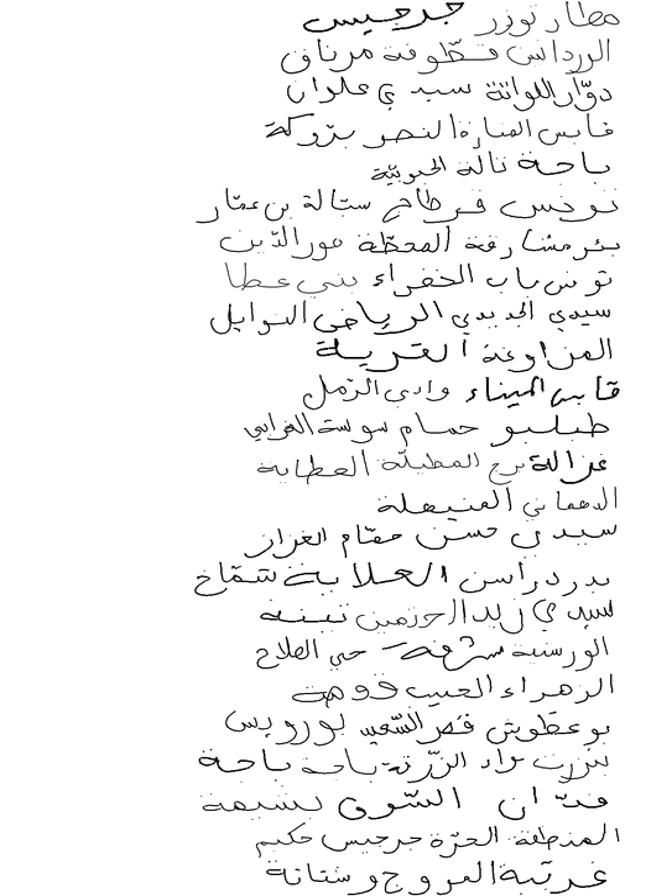 مطار توزر جرجيس
الرداس قطوفة مرناق
دوّار اللواتة سيدي علوان
قابس المنارة النصر بزوكة
باجة تالة الحبوبيّة
تونس قرطاج ستالة بن عمّار
بئر مشارقة المحطّة فور الدّين
تونس باب الخضراء بني عطا
سيدي الجديدي الرياض النوايل
الفراوعة القرية
قابس الميناء وادي الرّمل
طبلبو حمام سوسة الغرابي
غزالة برج العطايا
الدهماني المنيهلة
سيدي حسن مقام الغزاز
بدر دراسن العلاية شمّاخ
سيدي زيد الحزمين نبينة
الورسنية شرفة حي الفلاح
الزهراء الحبيب
بو عطوش قصر السّعيد بورويس
بنزرت واد الزّرقة باجة باجة
فدّان السّوق بشيمة
المنطقة الحرّة جرجيس حكيم
غرتبة المروج وشتاتة